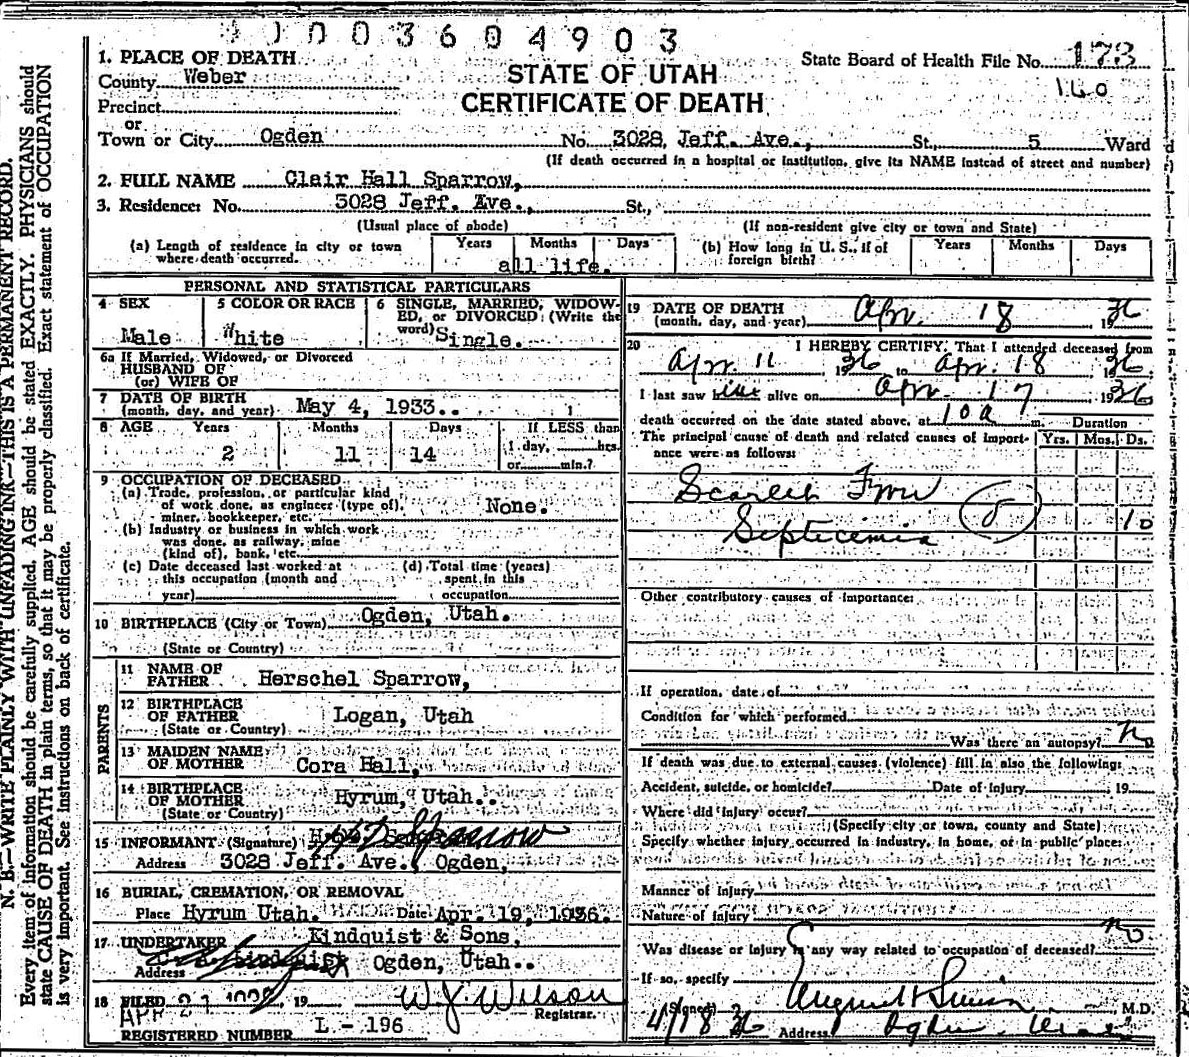 0003604903
1. PLACE OF DEATH
County Weber
Precinct
or
Town or City Ogden
STATE OF UTAH
CERTIFICATE OF DEATH
State Board of Health File No. 173
160
No. 3028 Jeff. Ave., St., 5 Ward
(If death occurred in a hospital or institution, give its NAME instead of street and number)
2. FULL NAME Clair Hall Sparrow,
3. Residence: No. 3028 Jeff. Ave., St.,
(Usual place of abode) (If non-resident give city or town and State)
(a) Length of residence in city or town where death occurred. Years Months Days
all life.
(b) How long in U. S., if of foreign birth? Years Months Days
PERSONAL AND STATISTICAL PARTICULARS
4 SEX
Male
5 COLOR OR RACE
White
6 SINGLE, MARRIED, WIDOW-
ED, or DIVORCED: (Write the
word) Single.
6a If Married, Widowed, or Divorced
HUSBAND OF
(or) WIFE OF
7 DATE OF BIRTH
(month, day, and year) May 4, 1933..
8 AGE Years Months Days If LESS than
2 11 14 1 day, hrs.
or min.?
9 OCCUPATION OF DECEASED
(a) Trade, profession, or particular kind
of work done, as engineer (type of),
miner, bookkeeper, etc. None.
(b) Industry or business in which work
was done, as railway, mine
(kind of), bank, etc.
(c) Date deceased last worked at
this occupation (month and
year)
(d) Total time (years)
spent in this
occupation
10 BIRTHPLACE (City or Town) Ogden, Utah.
(State or Country)
PARENTS
11 NAME OF
FATHER Herschel Sparrow,
12 BIRTHPLACE
OF FATHER Logan, Utah
(State or Country)
13 MAIDEN NAME
OF MOTHER Cora Hall,
14 BIRTHPLACE
OF MOTHER Hyrum, Utah..
(State or Country)
15 INFORMANT (Signature) Sparrow
Address 3028 Jeff. Ave. Ogden,
16 BURIAL, CREMATION, OR REMOVAL
Place Hyrum Utah. Date Apr. 19, 1936.
17 UNDERTAKER Lindquist & Sons,
Address Ogden, Utah..
18 FILED APR 21 19
W. J. Wilson
Registrar.
REGISTERED NUMBER L - 196
19 DATE OF DEATH
(month, day, and year) Apr. 18 1936
20 I HEREBY CERTIFY, That I attended deceased from
Apr. 11 1936 to Apr. 18 1936
I last saw him alive on Apr. 17 1936
death occurred on the date stated above, at 10 a m. Duration
The principal cause of death and related causes of import-
ance were as follows: Yrs. Mos. Ds.
Scarlet Fever
Septicemia 10
Other contributory causes of importance:
If operation, date of
Condition for which performed
Was there an autopsy? No
If death was due to external causes (violence) fill in also the following:
Accident, suicide, or homicide? Date of Injury 19
Where did injury occur?
(Specify city or town, county and State)
Specify whether injury occurred in industry, in home, or in public place:
Manner of Injury
Nature of Injury
Was disease or injury in any way related to occupation of deceased? No
If so, specify
(Signed) M.D.
4/18 36 Address Ogden, Utah
N. B.—WRITE PLAINLY WITH UNFADING INK—THIS IS A PERMANENT RECORD.
Every item of information should be carefully supplied. AGE should be stated EXACTLY. PHYSICIANS should
state CAUSE OF DEATH in plain terms, so that it may be properly classified. Exact statement of OCCUPATION
is very important. See instructions on back of certificate.